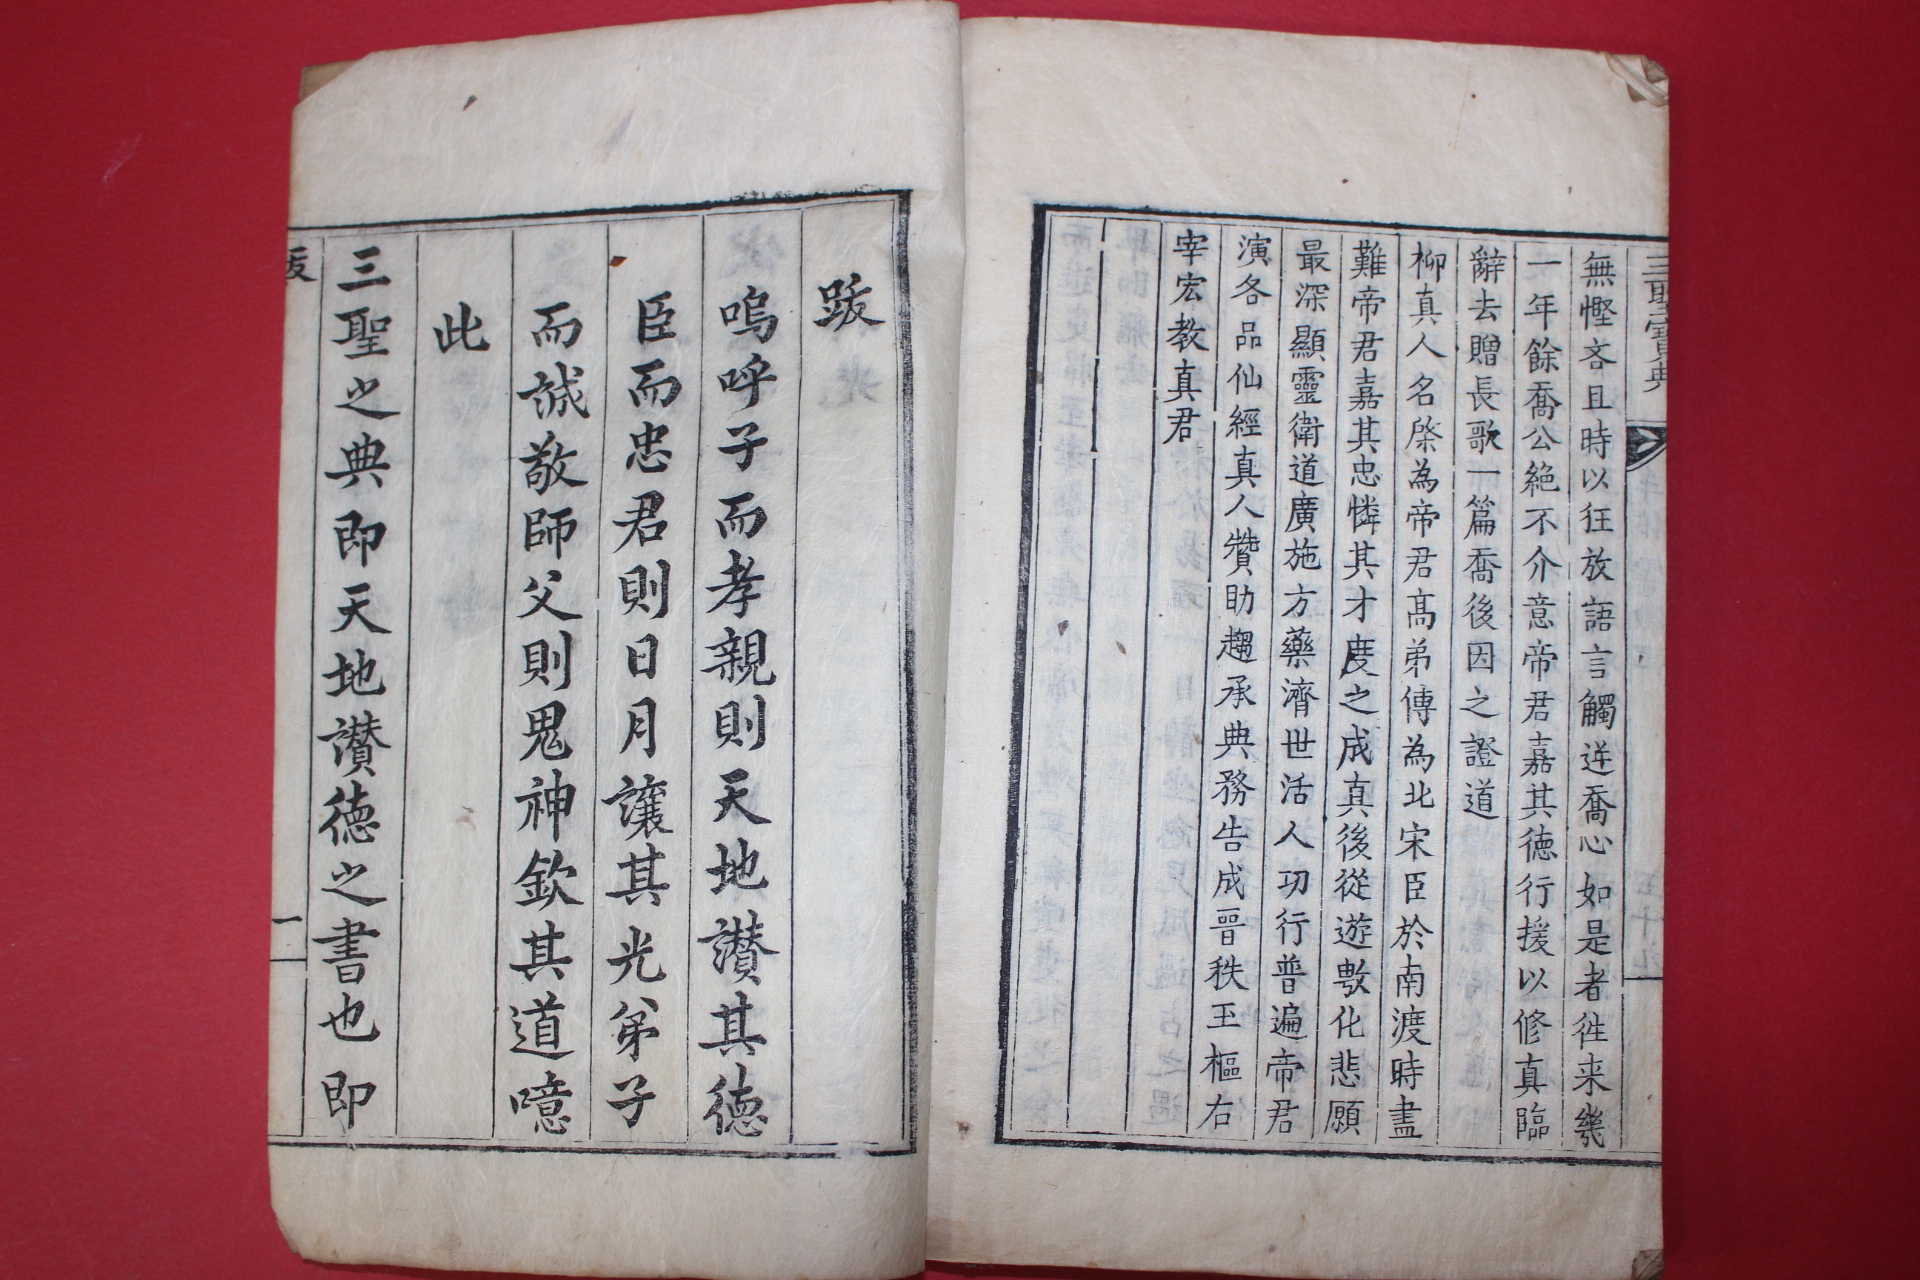 三聖寶典
五十九
無慳吝且時以狂放語言觸迕喬心如是者往来幾
一年餘喬公絶不介意帝君嘉其德行援以修真臨
辭去贈長歌一篇喬後因之證道
柳真人名棨為帝君髙弟傳為北宋臣於南渡時盡
難帝君嘉其忠憐其才度之成真後從遊敷化悲願
最深顯靈衛道廣施方藥濟世活人功行普遍帝君
演各品仙經真人贊助趨承典務告成晉秩玉樞右
宰宏教真君
跋
嗚呼子而孝親則天地讃其德
臣而忠君則日月讓其光弟子
而誠敬師父則鬼神欽其道噫
此
三聖之典即天地讃德之書也即
跋
一